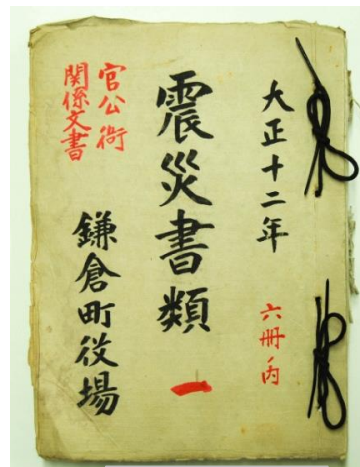 大正十二年
六冊内
震災書類
一
官公衙
関係文書
鎌倉町役場